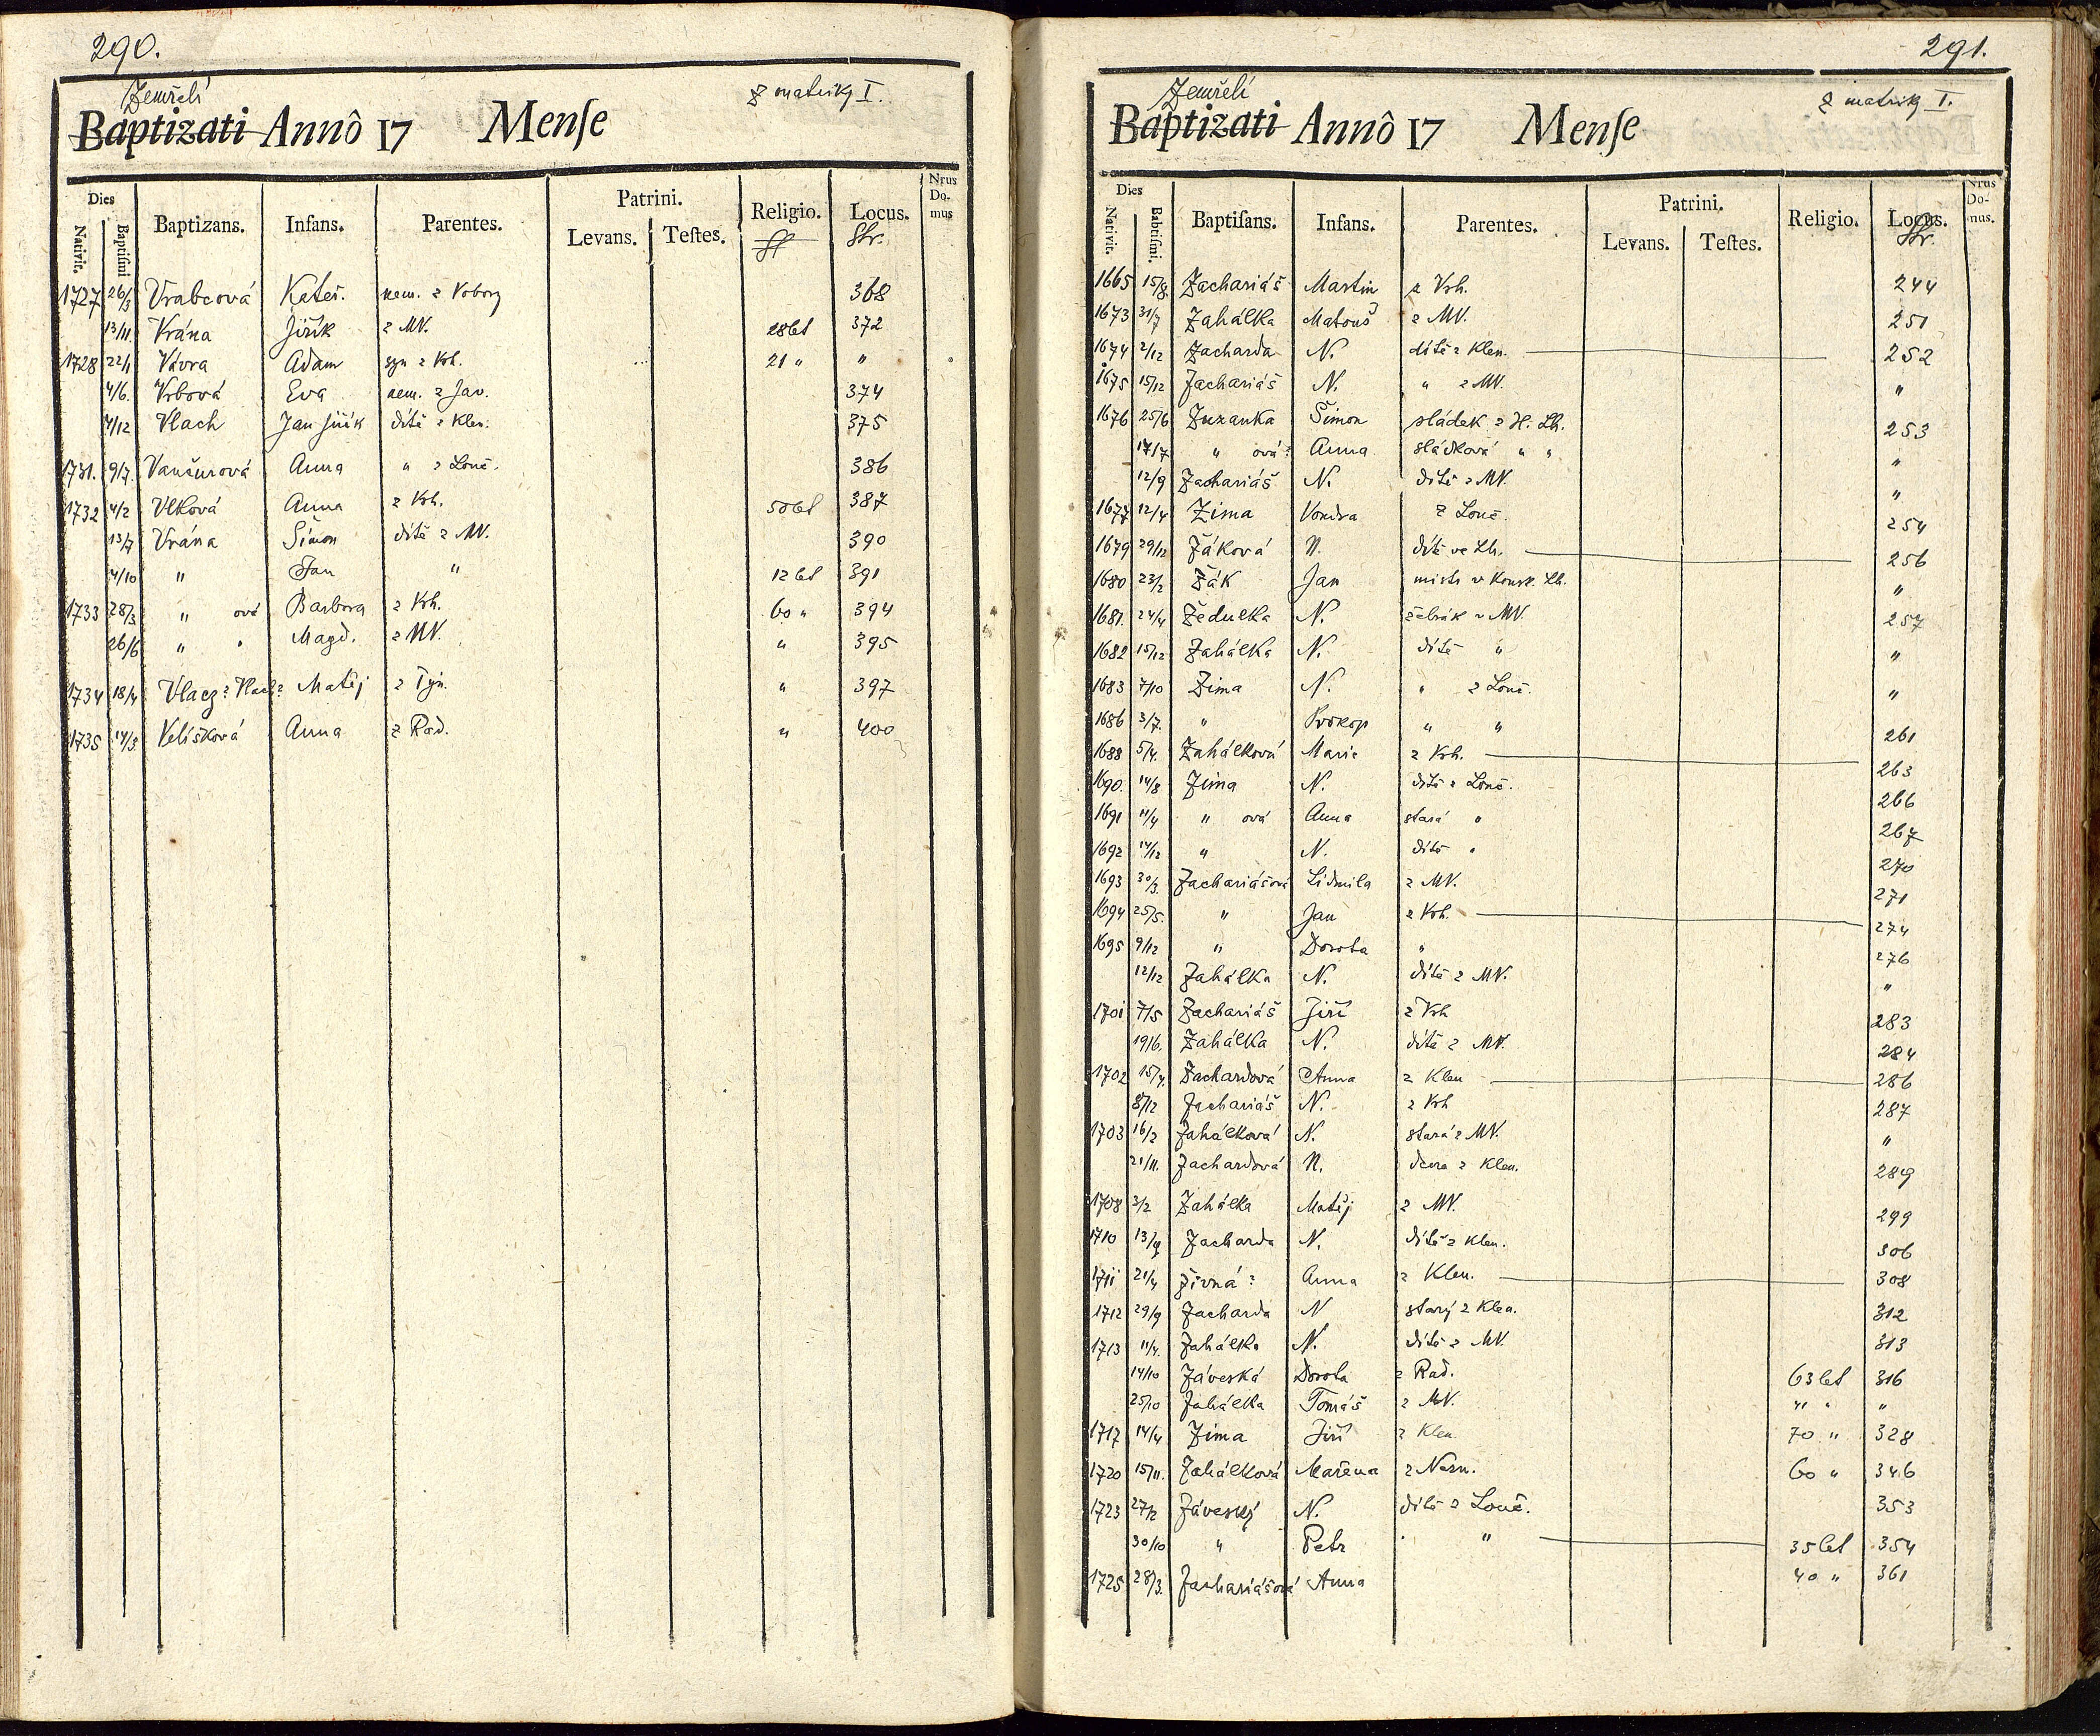 290.
Zemřelí
z matriky I.
Baptizati Annô 17 Menſe
Dies Nativit. Baptiſmi Baptizans. Infans. Parentes. Patrini. Levans. Teſtes. Religio. Locus. Nrus Domus
Str.
1727 26/3 Vrabcová Kateř. nem. z Vobory 368
13/11. Vrána Jiřík z MV. 28 let 372
1728 22/1 Vávra Adam syn z Krh. 21 " "
4/6. Vrbová Eva nem. z Jav. 374
4/12 Vlach Jan Jiřík dítě z Klen. 375
1731. 9/7. Vančurová Anna " z Louč. 386
1732 4/2 Vlková Anna z Krh. 50 let 387
13/7 Vrána Šimon dítě z MV. 390
4/10 " Jan " 12 let 391
1733 28/3 " ová Barbora z Krh. 60 " 394
26/6 " " Magd. z MV. " 395
1734 18/4 Vlacz? Vlach? Matěj z Týn. " 397
1735 14/3 Velíšková Anna z Rad. " 400
291.
Zemřelí
z matriky I.
Baptizati Annô 17 Menſe
Dies Nativit. Babtiſmi. Baptiſans. Infans. Parentes. Patrini. Levans. Teſtes. Religio. Locus. Nrus Domus.
Str.
1665 15/8 Zachariáš Martin z Krh. 244
1673 31/7 Zahálka Matouš z MV. 251
1674 2/12 Zacharda N. dítě z Klen. 252
1675 15/12 Zachariáš N. " z MV. "
1676 25/6 Zuzanka Šimon sládek z H. Lh. 253
17/7 " ová? Anna sládková " " "
12/9 Zachariáš N. dítě z MV. "
1677 12/4 Zima Vondra z Louč. 254
1679 29/12 Žáková N. dítě ve Lh. 256
1680 23/2 Žák Jan mistr v Konsk. Lh. "
1681. 24/4 Žedulka N. žebrák v MV. 257
1682 15/12 Zahálka N. dítě " "
1683 7/10 Zima N. " z Louč. "
1686 3/7. " Prokop " " 261
1688 5/4. Zahálková Marie z Krh. 263
1690. 14/8 Zima N. dítě z Louč. 266
1691 11/4 " ová Anna stará " 267
1692 14/12 " N. dítě " 270
1693 30/3. Zachariášová Lidmila z MV. 271
1694 25/5. " Jan z Krh. 274
1695 9/12 " Dorota " 276
12/12 Zahálka N. dítě z MV. "
1701 7/5 Zachariáš Jiří z Krh 283
19/6. Zahálka N. dítě z MV. 284
1702 15/4. Zachardová Anna z Klen 286
8/12 Zachariáš N. z Krh 287
1703 16/2 Zahálková N. stará z MV. "
21/11. Zachardová N. dcera z Klen. 289
1708 3/2 Zahálka Matěj z MV. 299
1710 13/9 Zacharda N. dítě z Klen. 306
1711 21/4 Živná? Anna z Klen. 308
1712 29/9 Zacharda N starý z Klen. 312
1713 11/4. Zahálka N. dítě z MV. 313
14/10 Záveská Dorota z Rad. 63 let 316
25/10 Zahálka Tomáš z MV. 41 " "
1717 14/4 Zima Jiří z Klen 70 " 328
1720 15/11. Zahálková Mařena z Nesn. 60 " 346
1723 27/2 Záveský N. dítě z Louč. 353
30/10 " Petr " " 35 let 354
1725 28/3. Zachariášová Anna 40 " 361